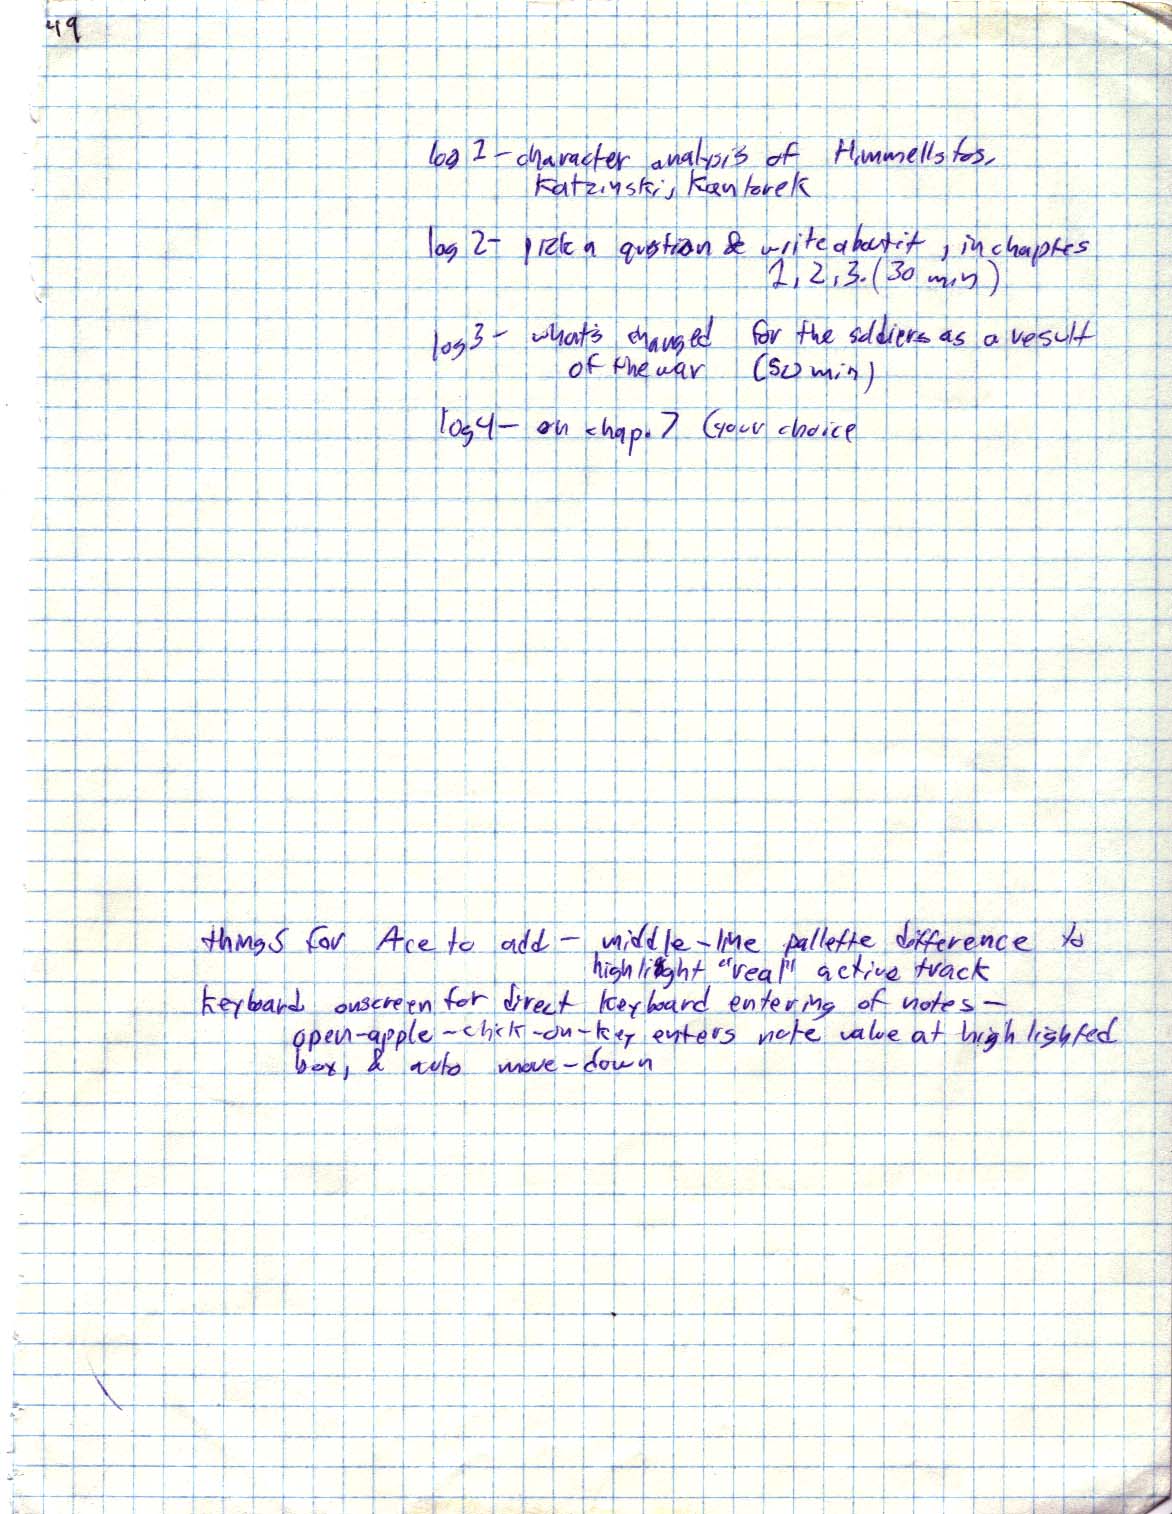 49
log 1 - character analysis of Himmellstos,
Katzinski, Kantorek
log 2 - pick a qustion & write about it, in chaptes
1, 2, 3. (30 min)
log 3 - what's changed for the soldiers as a result
of the war (50 min)
log 4 - on chap. 7 (your choice
things for Ace to add - middle-line pallette difference to
highlight "real" active track
keyboard onscreen for direct keyboard entering of notes -
open-apple-click-on-key enters note value at highlighted
box, & auto move-down